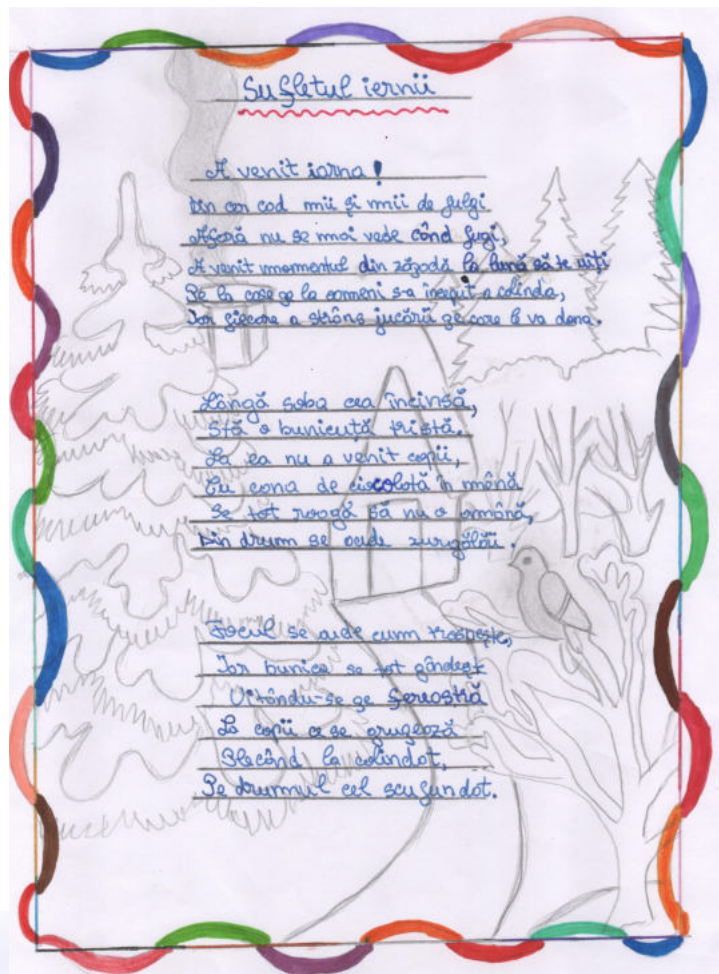 Sufletul iernii
A venit iarna!
Din cer cad mii și mii de fulgi
Afară nu se mai vede când fugi,
A venit momentul din zăpadă la lună să te uiți
Pe la case pe la oameni s-a început a colinda,
Iar fiecare a strâns jucării pe care le va dona.
Lângă soba cea încinsă,
Stă o bunicuță tristă.
La ea nu a venit copii,
Cu cana de ciocolată în mână
Se tot roagă să nu o amână,
Din drum se aude zurgălăii.
Focul se aude cum trosnește,
Iar bunica se tot gândeșt
Uitându-se pe fereastră
La copii ce se grupează
Plecând la colindat,
Pe drumul cel scufundat.